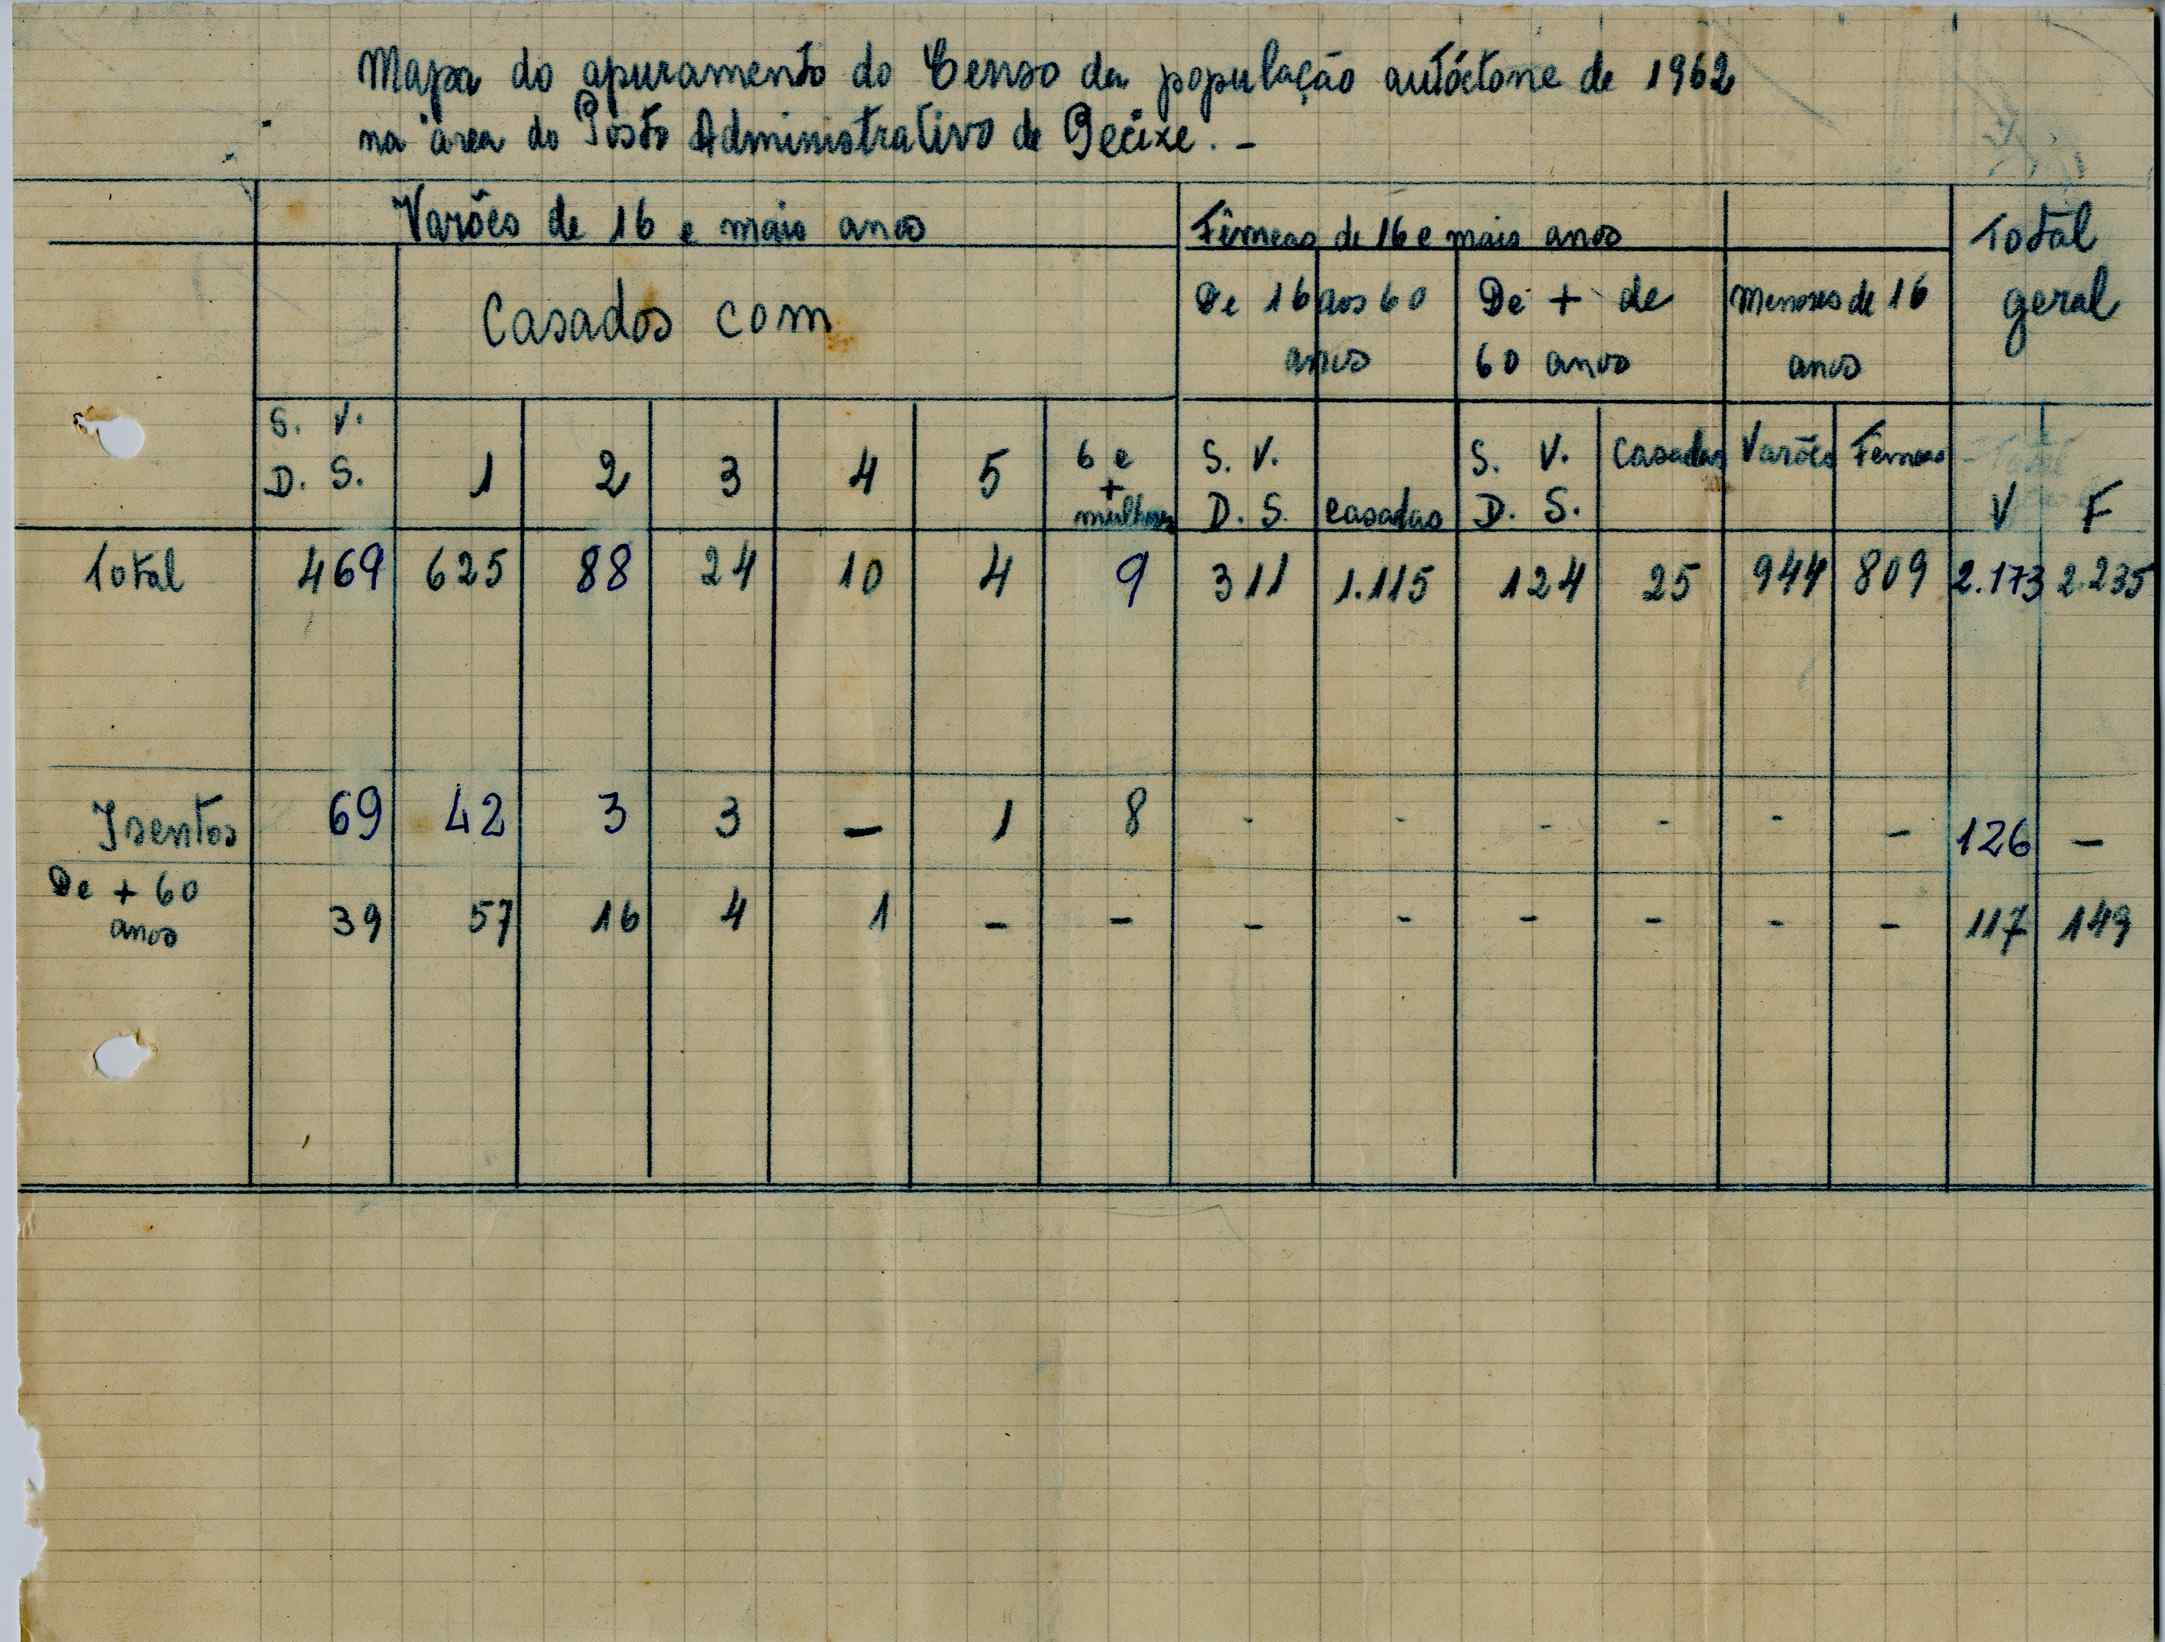 Mapa do apuramento do Censo da população autóctone de 1962
na área do Posto Administrativo de Pecixe. -
Varões de 16 e mais anos Fêmeas de 16 e mais anos Total geral
Casados com De 16 aos 60 anos De + de 60 anos Menores de 16 anos
S. V. D. S. 1 2 3 4 5 6 e + mulheres S. V. D. S. casadas S. V. D. S. Casadas Varões Fêmeas V F
Total 469 625 88 24 10 4 9 311 1.115 124 25 944 809 2.173 2.235
Isentos 69 42 3 3 - 1 8 - - - - - - 126 -
De + 60 anos 39 57 16 4 1 - - - - - - - - 117 149